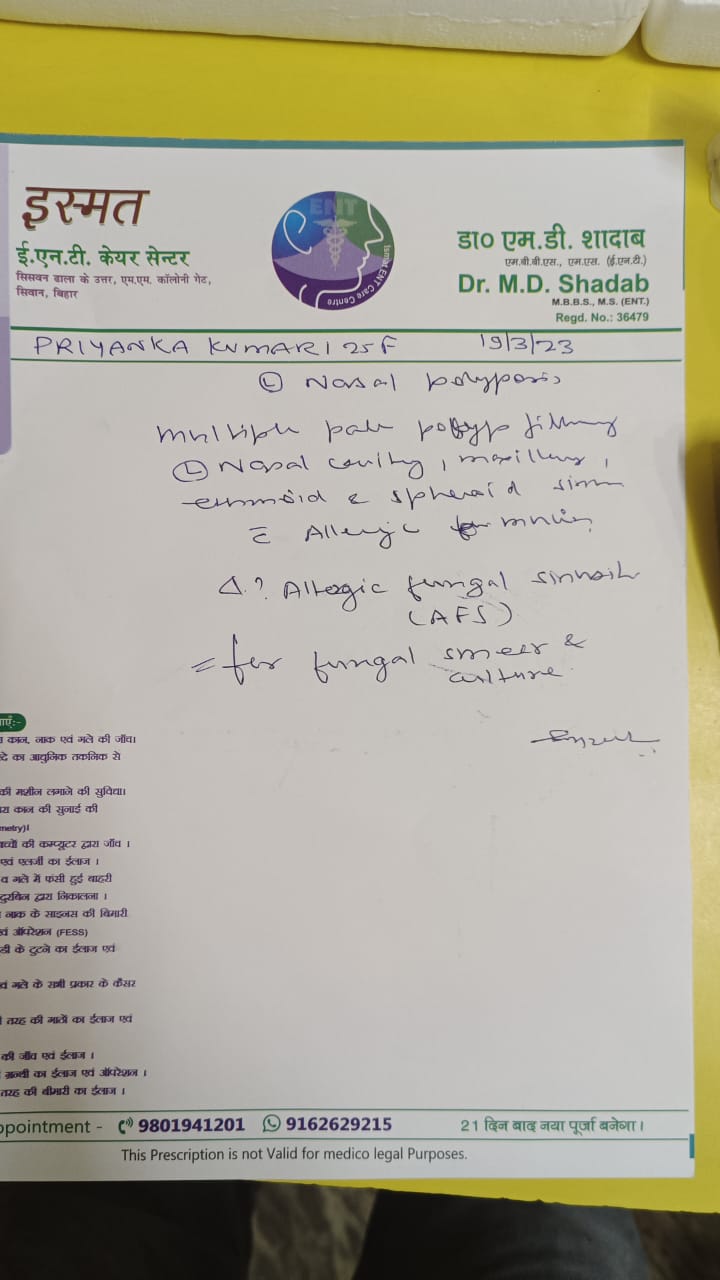 इस्मत
ई.एन.टी. केयर सेन्टर
सिसवन ढाला के उत्तर, एम.एम. कॉलोनी गेट,
सिवान, बिहार
ENT
Ismat ENT Care Centre
डा० एम.डी. शादाब
एम.बी.बी.एस., एम.एस. (ई.एन.टी.)
Dr. M.D. Shadab
M.B.B.S., M.S. (ENT.)
Regd. No.: 36479
PRIYANKA KUMARI 25 F 19/3/23
(L) Nasal polyposis
Multiple pale polyp filling
(L) Nasal cavity, maxillary,
ethmoid & sphenoid sinus
c̄ Allergic mucin
Δ.? Allergic fungal sinusitis
(AFS)
= for fungal smear &
culture
ाएँ:-
कान, नाक एवं गले की जाँच।
दे का आधुनिक तकनिक से
की मशीन लगाने की सुविधा।
रा कान की सुनाई की
metry)।
च्चों की कम्प्यूटर द्वारा जाँच ।
एवं एलर्जी का ईलाज ।
व गले में फंसी हुई बाहरी
दुरबिन द्वारा निकालना ।
नाक के साइनस की बिमारी
वं ऑपरेशन (FESS)
डी के टुटने का ईलाज एवं
वं गले के सभी प्रकार के कैंसर
तरह की गाठों का ईलाज एवं
की जाँच एवं ईलाज ।
ग्रन्थी का ईलाज एवं ऑपरेशन ।
तरह की बीमारी का ईलाज ।
ppointment - 9801941201 9162629215 21 दिन बाद नया पूर्जा बनेगा।
This Prescription is not Valid for medico legal Purposes.